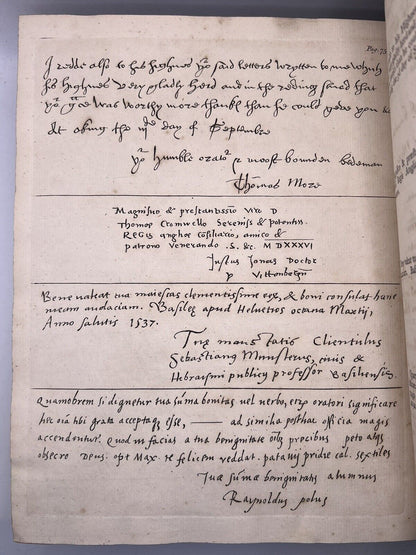 Pag. 75
I redde also to his highnes yor said letters wrytten to me which
his highnes very gladly herd and in the reding saied that
yor grce was worthy more thankk than he could geve you &
At oking the iijde day of Septembre
yor humble orator & moost bounden bedeman
Thomas More
Magnifico & prestantissimo Viro D
Thomae Cromwello Sereniss & potentiss.
REGIS angliae cosiliario, amico &
patrono venerando .S. &c. M D XXXVI
Justus Jonas Doctor
p Vittenbergen
Bene valeat tua maiestas clementissime rex, & boni consulat hanc
meam audaciam. Basileę apud Helvetios octava Martij,
Anno salutis 1537.
Tuę maiestatis Clientulus
Sebastianus Munsterus, civis &
Hebraismi publicus professor Basiliensis
Quamobrem si dignetur tua suma bonitas vel verbo, erga oratori significare
hec oia tibi grata acceptaq esse, ad similia posthac officia magis
accendentur. Quod ut facias a tua benignitate oibs precibus peto atq
obsecro Deus. opt Max. te felicem reddat. patavij pridie cal. sextiles
Tuae sumae benignitatis alumnus
Raynoldus polus